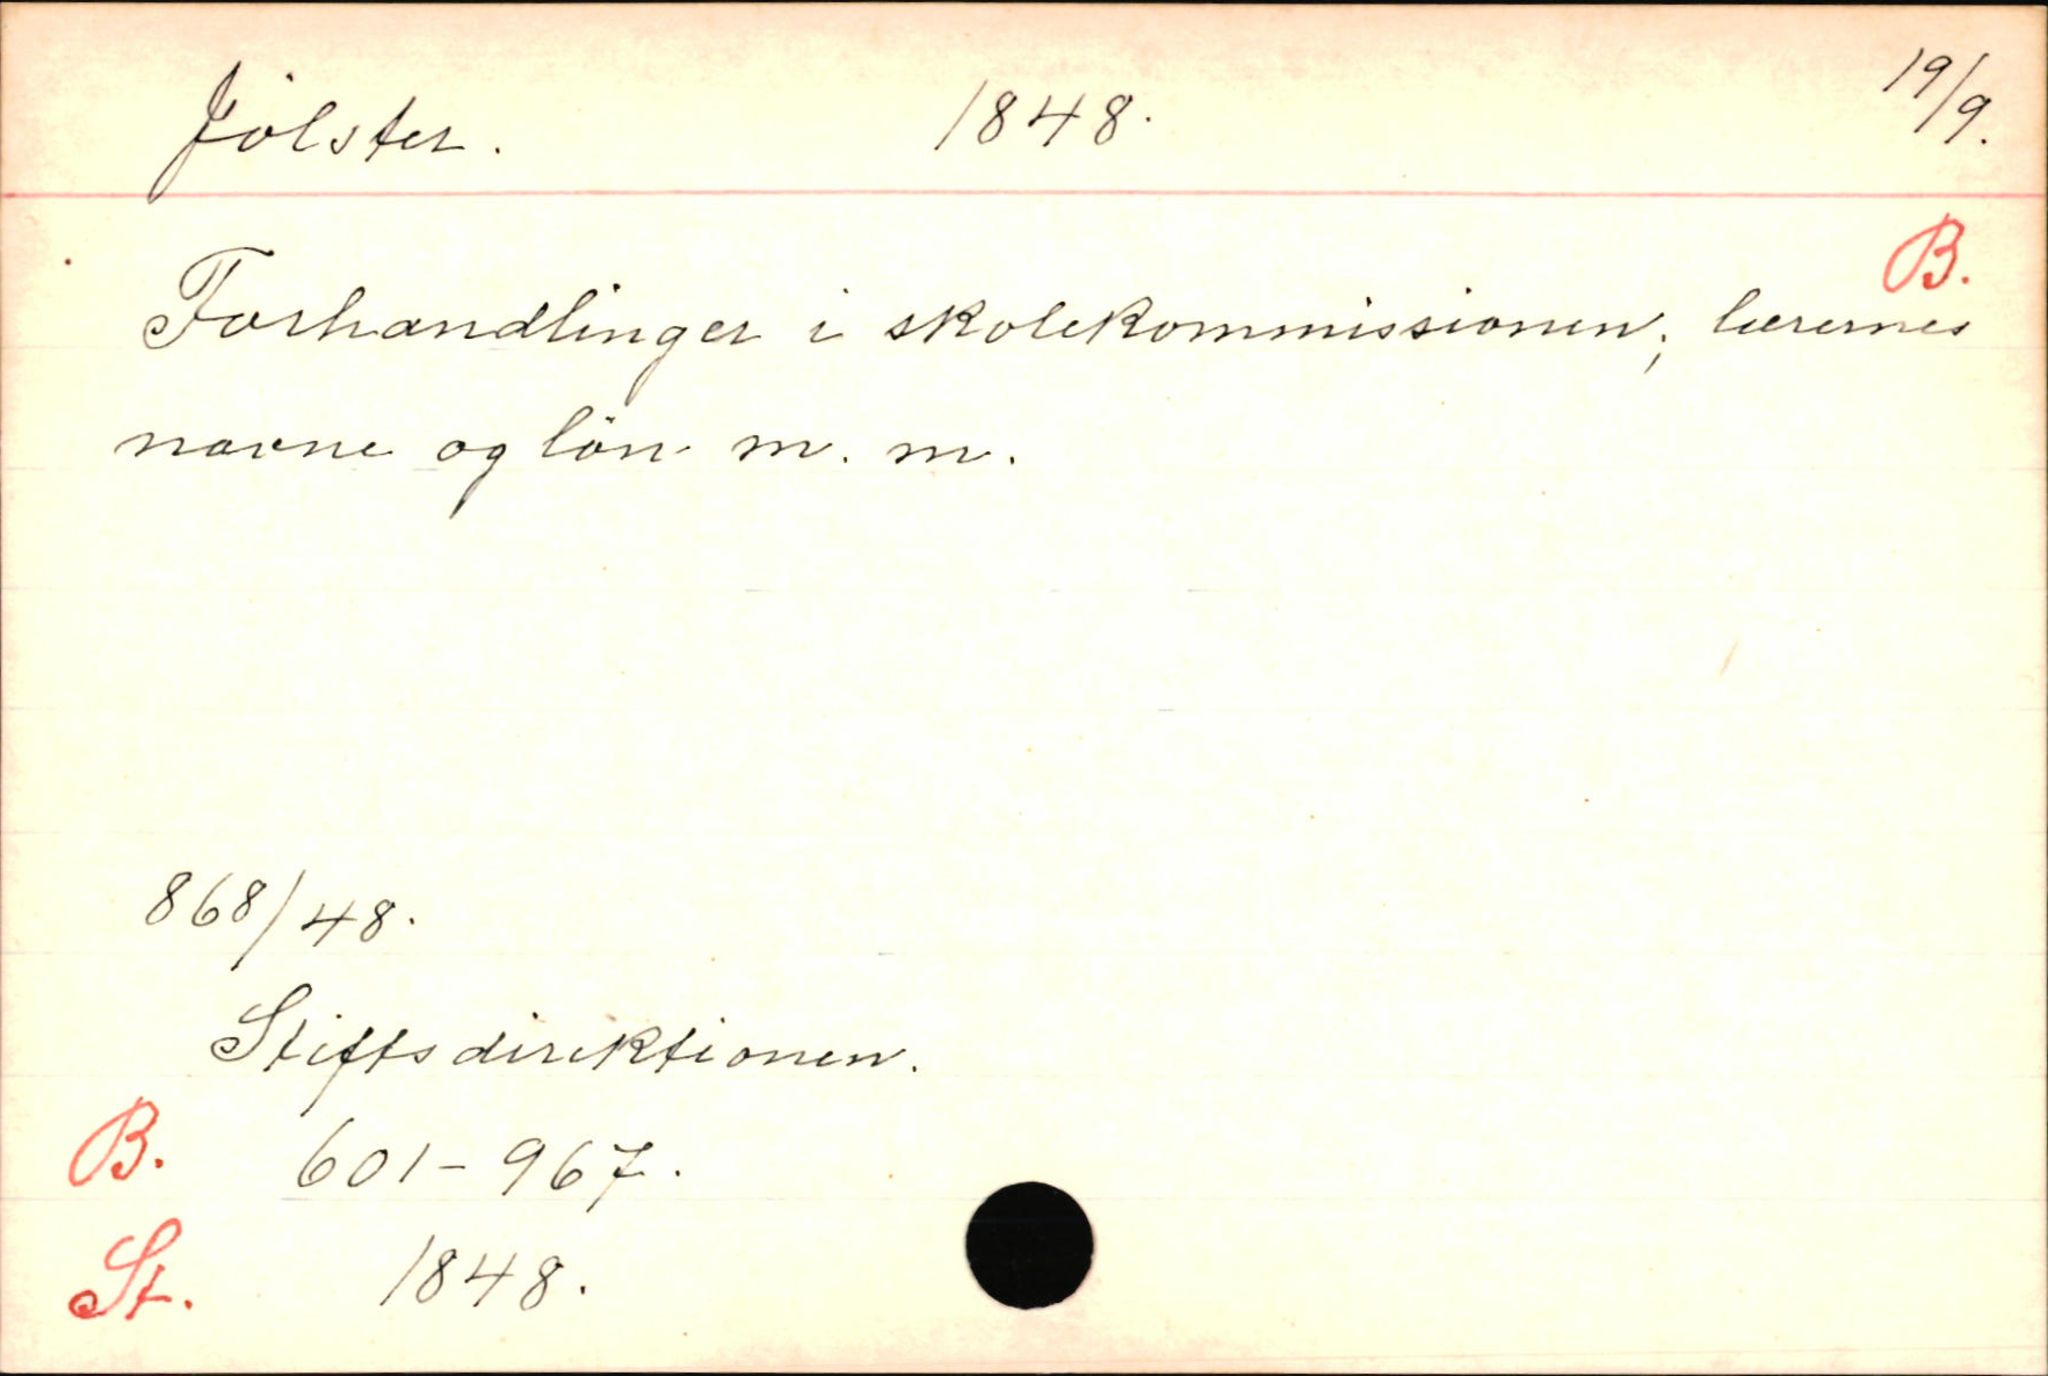 Jölster. 1848. 19/9.
B.
Forhandlinger i skolekommissionen; lærernes
navne og lön m. m.
868/48.
Stiftsdirektionen.
B. 601-967.
St. 1848.